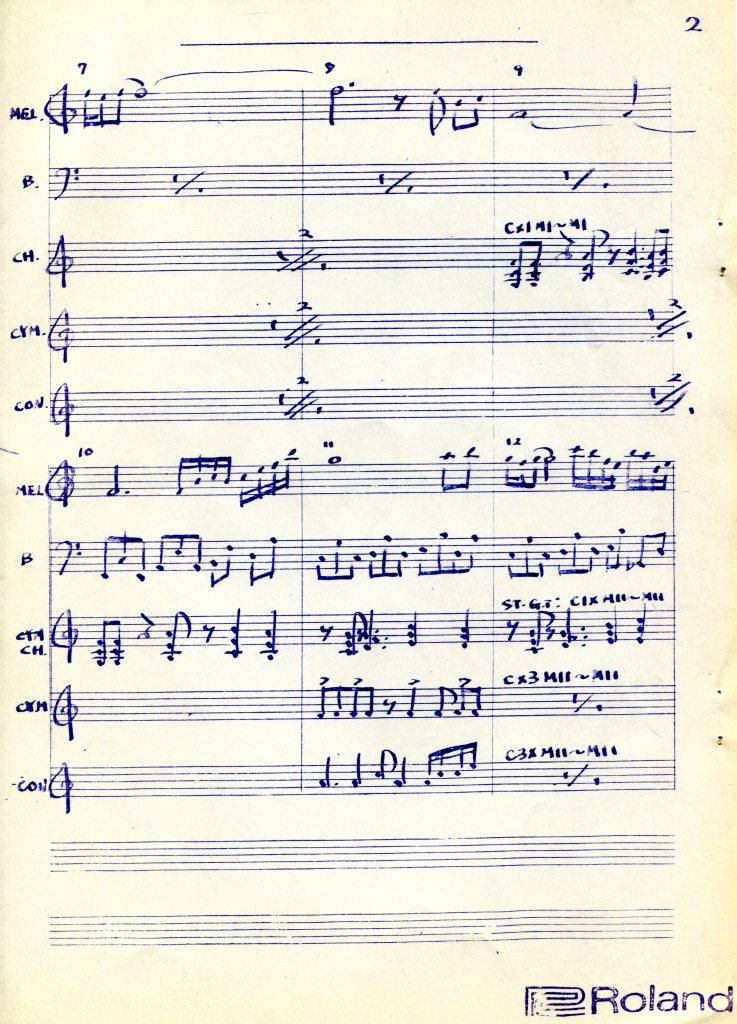 2
7 8 9
MEL.
B.
CH. 2 CX1 M1~M1
CYM. 2 2
CON. 2 2
10 11 12
MEL
B
ST.GT: C1X M11~M11
CYM
CH.
CX3 M11~M11
CYM
C3X M11~M11
CON
Roland